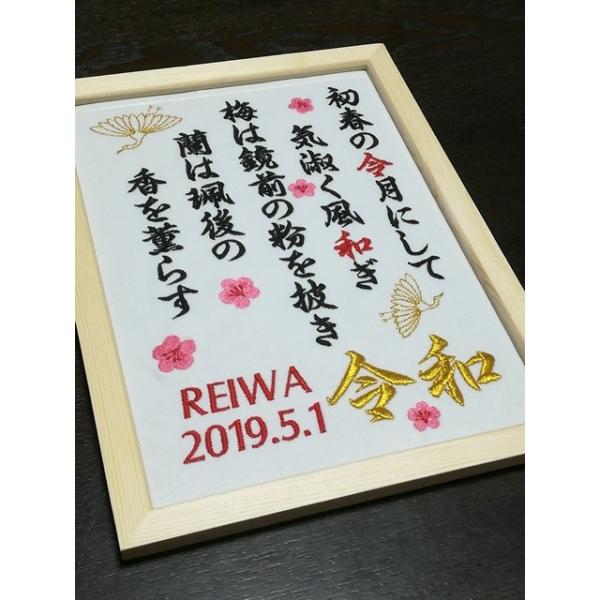 初春の令月にして
気淑く風和ぎ
梅は鏡前の粉を披き
蘭は珮後の
香を薫らす
令和
REIWA
2019.5.1